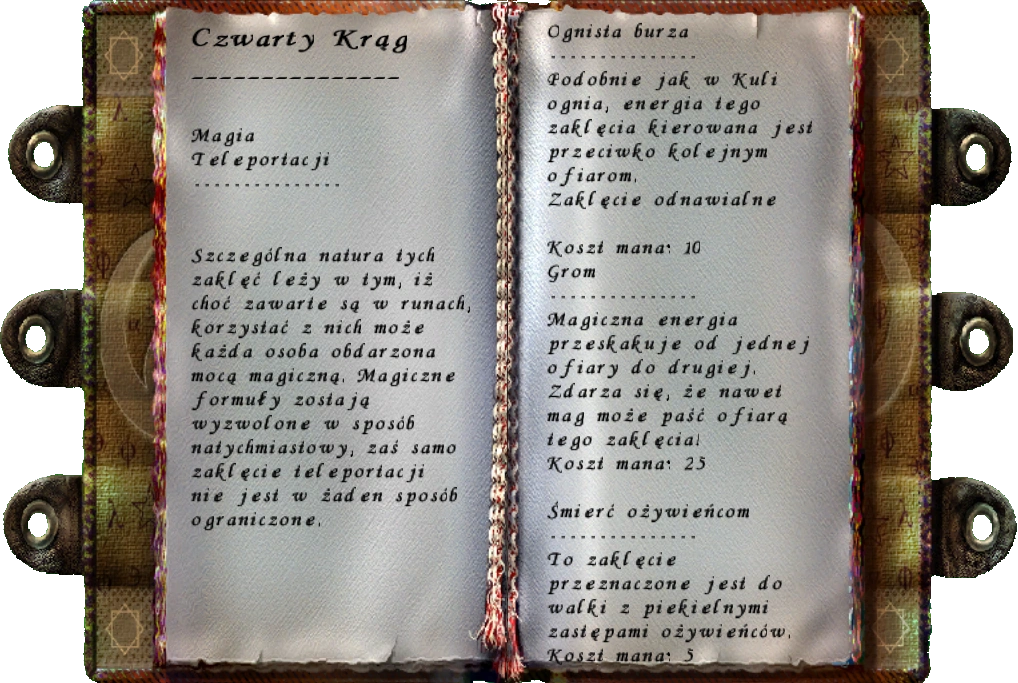 Czwarty Krąg
---------------
Magia
Teleportacji
---------------
Szczególna natura tych
zaklęć leży w tym, iż
choć zawarte są w runach,
korzystać z nich może
każda osoba obdarzona
mocą magiczną. Magiczne
formuły zostają
wyzwolone w sposób
natychmiastowy, zaś samo
zaklęcie teleportacji
nie jest w żaden sposób
ograniczone.
Ognista burza
---------------
Podobnie jak w Kuli
ognia, energia tego
zaklęcia kierowana jest
przeciwko kolejnym
ofiarom.
Zaklęcie odnawialne
Koszt mana: 10
Grom
---------------
Magiczna energia
przeskakuje od jednej
ofiary do drugiej.
Zdarza się, że nawet
mag może paść ofiarą
tego zaklęcia!
Koszt mana: 25
Śmierć ożywieńcom
---------------
To zaklęcie
przeznaczone jest do
walki z piekielnymi
zastępami ożywieńców.
Koszt mana: 5